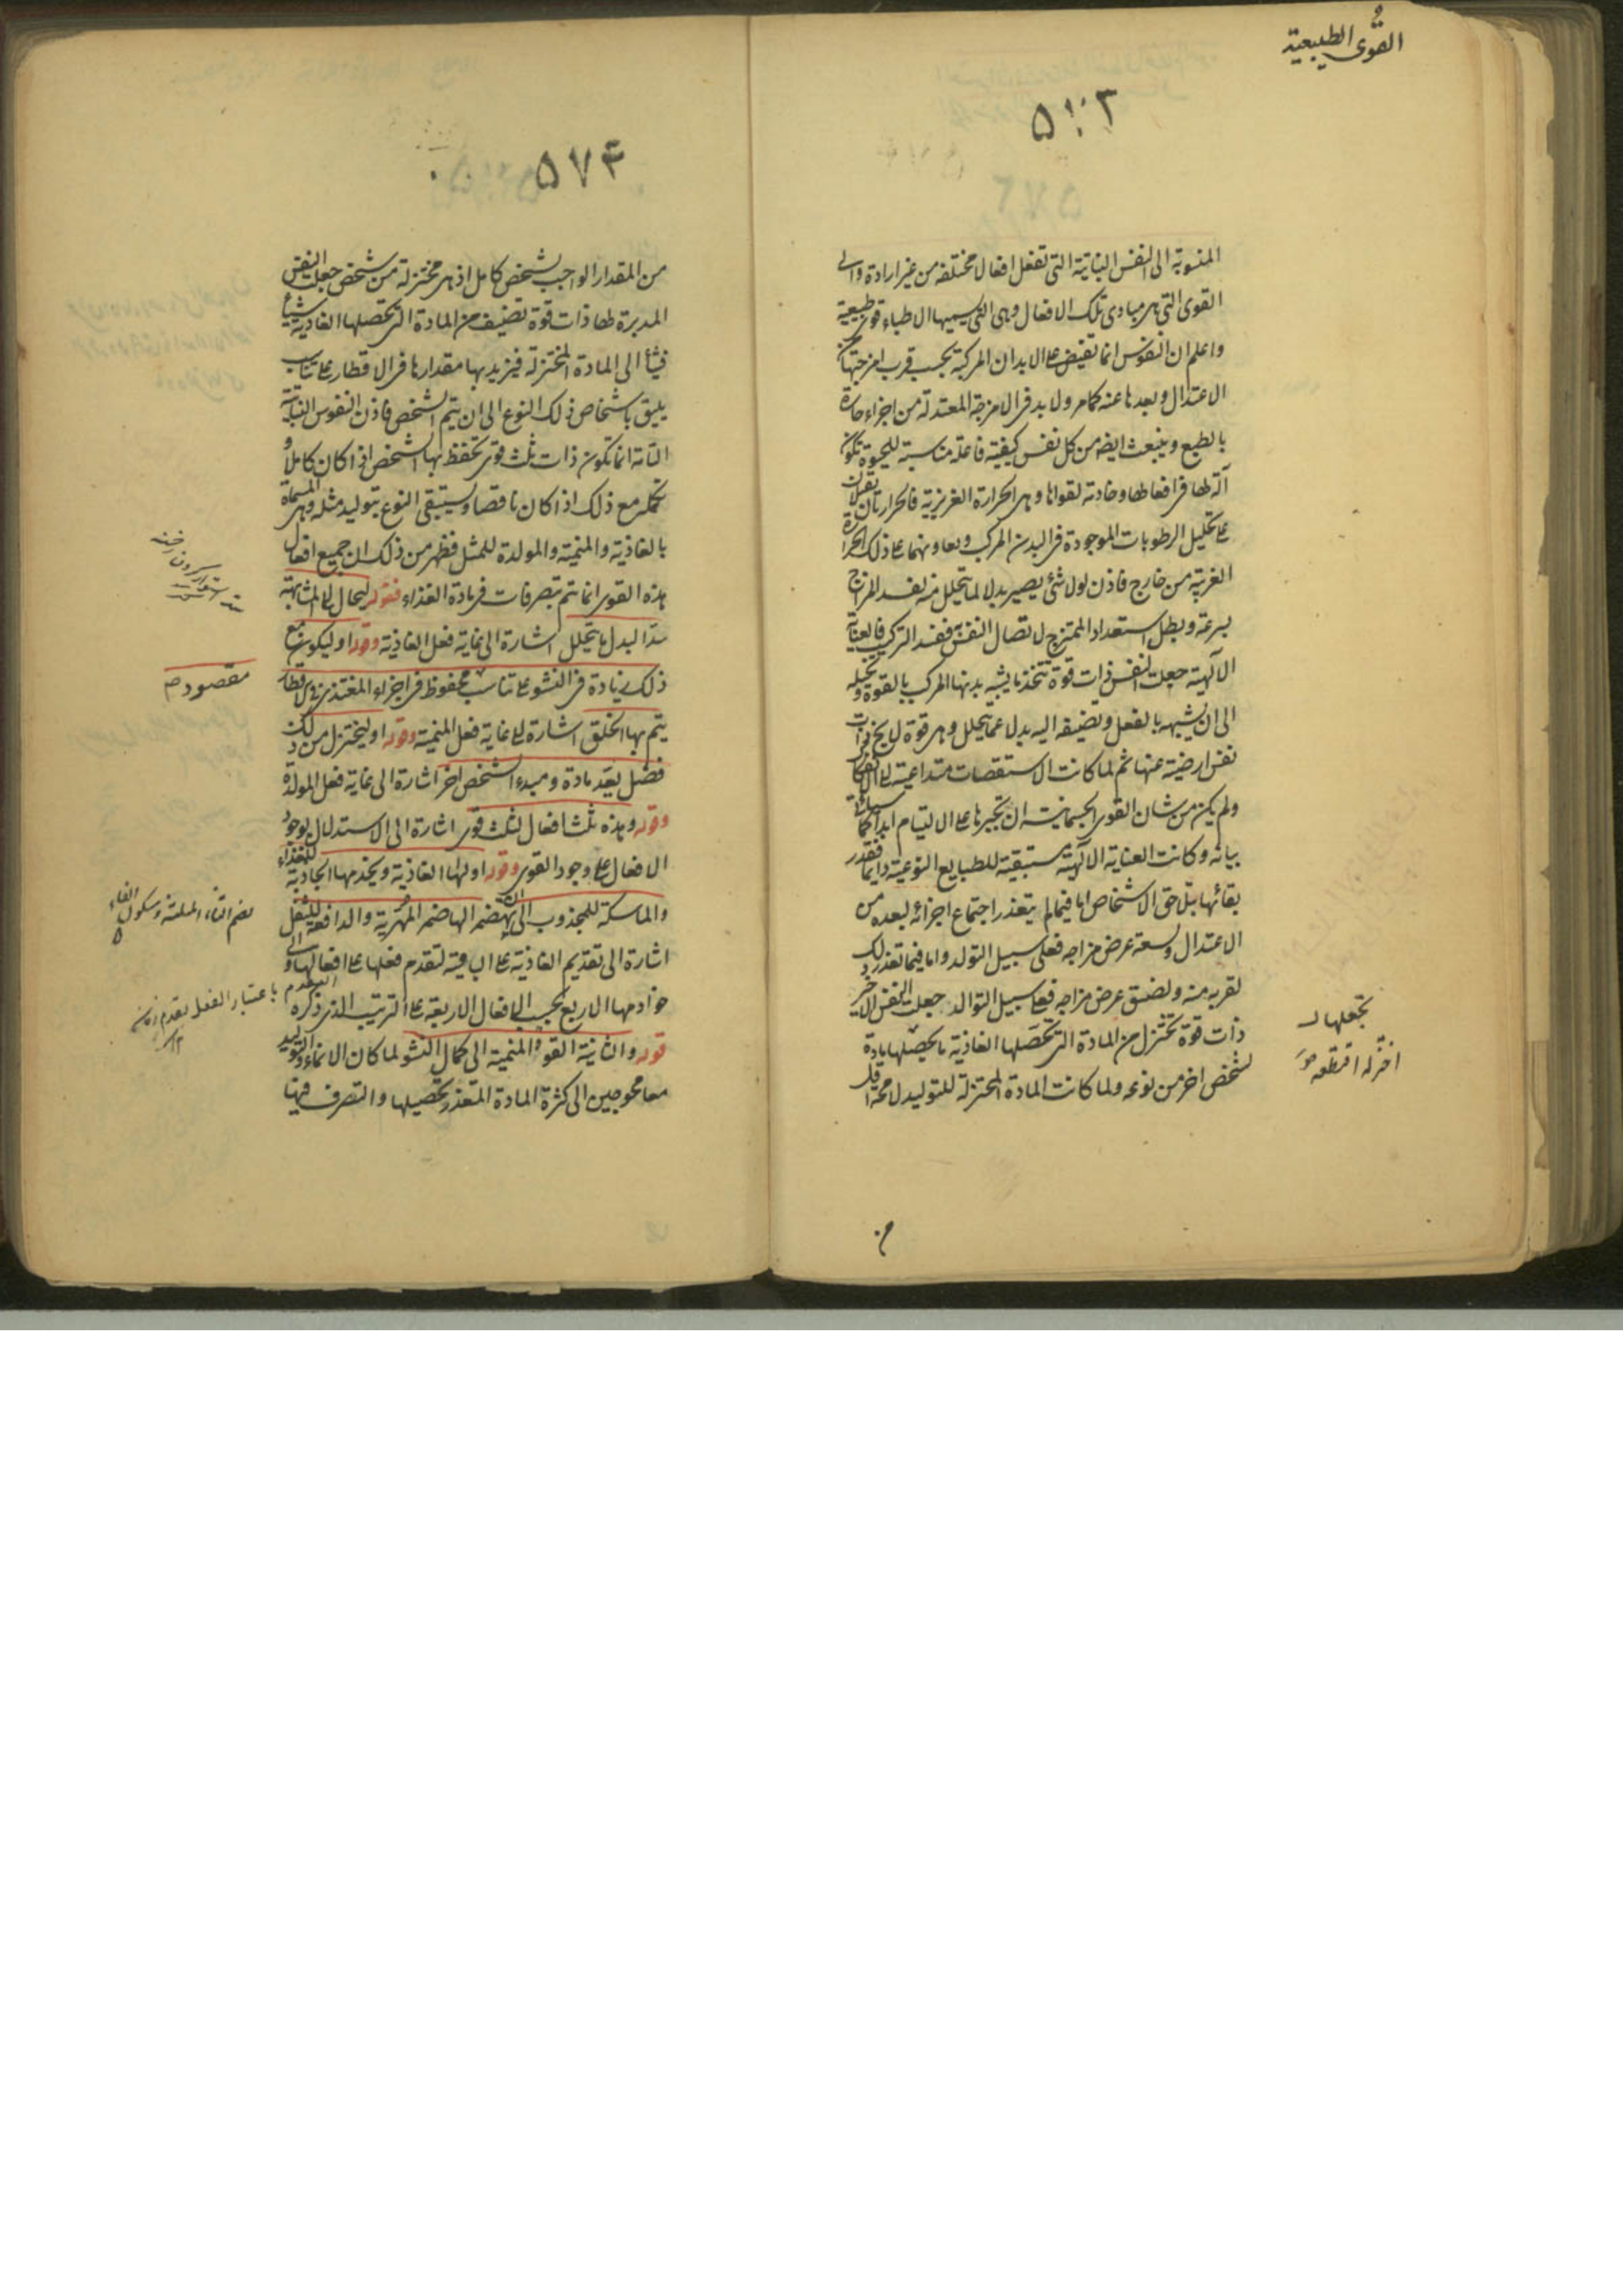 القوى الطبيعية
المنسوبة الى النفس النباتية التى تفعل افعالا مختلفة من غير ارادة والى
القوى التى هى مبادى تلك الافعال وهى التى يسميها الاطباء قوى طبيعية
واعلم ان النفوس انما تفيض على الابدان المركبة بحسب قرب امزجتها من
الاعتدال وبعدها عنه كما مر ولا بد فى الامزجة المعتدلة من اجزاء حارة
بالطبع وينبعث ايضا من كل نفس كيفية فاعلة مناسبة للحيوة تكون
آلة لها فى افعالها وخادمة لقواها وهى الحرارة الغريزية فالحرارتان تقبلان
على تحليل الرطوبات الموجودة فى البدن المركب ويعاونهما على ذلك الحرارة
الغريبة من خارج فاذن لولا شئ يصير بدلا لما يتحلل منه لفسد المزاج
بسرعة وبطل استعداد الممتزج لاتصال النفس ففسد التركيب فالعناية
الآلهية جعلت النفس ذات قوة تتخذ ما يشبه بدنها المركب بالقوة وتحيله
الى ان يشبهه بالفعل وتضيفه اليه بدلا عما يتحلل وهى قوة لا يخ ذات
نفس ارضية عنها ثم لما كانت الاستقصات متداعية الى الانفكاك
ولم يكن من شان القوى الجسمانية ان تجبرها على الالتيام ابدا كما سيأتى
بيانه وكانت العناية الآلهية مستبقية للطبايع النوعية دايما فقدر
بقائها بتلاحق الاشخاص اما فيما لم يتعذر اجتماع اجزائه لبعده من
الاعتدال وسعة عرض مزاجه فعلى سبيل التولد واما فيما تعذر ذلك
لقربه منه ولضيق عرض مزاجه فعلى سبيل التوالد جعلت النفس الاخر
ذات قوة تختزل من المادة التى تحصلها الغاذية ما يحصلها مادة
لشخص اخر من نوعه ولما كانت المادة المختزلة للتوليد لا محة اقل
تجعلها
اختزله اقتطعه
٥٧٤
من المقدار الواجب لشخص كامل اذ هى مختزلة من شخص جعلت النفس
المدبرة لها ذات قوة تضيف من المادة التى تحصلها الغاذية شيئا
فشيئا الى المادة المختزلة فيزيد بها مقدارها فى الاقطار على تناسب
يليق باشخاص ذلك النوع الى ان يتم الشخص فاذن النفوس النباتية
التامة انما تكون ذات ثلث قوى تحفظ بها الشخص اذا كان كاملا و
تكمله مع ذلك اذا كان ناقصا ويستبقى النوع بتوليد مثله وهى المسماة
بالغاذية والمنمية والمولدة للمثل فظهر من ذلك ان جميع افعال
هذه القوى انما تتم بتصرفات فى مادة الغذاء فقوله ليحال الى المشابهة
سد البدل ما يتحلل اشارة الى غاية فعل الغاذية وقوله او ليكون مع
ذلك زيادة فى النشو على تناسب محفوظ فى اجزاء المغتذى فى الاقطار
يتم بها الخلق اشارة الى غاية فعل المنمية وقوله او ليختزل من ذلك
فضل يعد مادة ومبدء الشخص اخر اشارة الى غاية فعل المولدة
وقوله وهذه ثلث افعال لثلث قوى اشارة الى الاستدلال بوجود
الافعال على وجود القوى وقوله اولها الغاذية ويخدمها الجاذبة للغذاء
والماسكة للمجذوب الى ان يهضمه الهاضم المهرية والدافعة للثفل
اشارة الى تقديم الغاذية على الباقية لتقدم فعلها على افعالها والى
خوادمها الاربع بحسب الافعال الاربعة على الترتيب الذى ذكره
قوله والثانية القوة المنمية الى كمال النشو لما كان الانماء والتوليد
معا محوجين الى كثرة المادة المتعذر تحصيلها والتصرف فيها
مقصود
بضم الثاء المثلثة وسكون الفاء
التقدم باعتبار الفعل تقدم